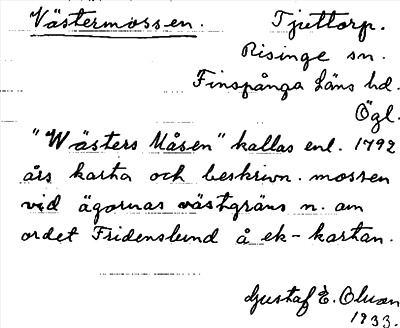 Västermossen. Tjuttorp.
Risinge sn.
Finspånga Läns hd.
Ögl.
"Wästers Måsen" kallas enl. 1792
års karta och beskrivn. mossen
vid ägornas västgräns n. om
ordet Fridenslund å ek-kartan.
Gustaf E. Olson
1933.